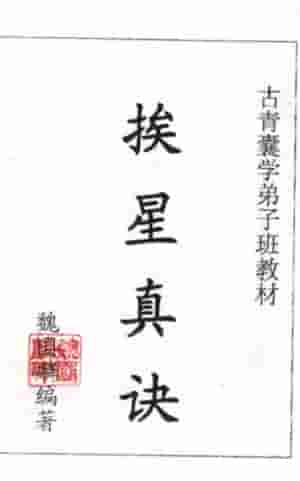 古青囊学弟子班教材
挨星真诀
魏国华编著